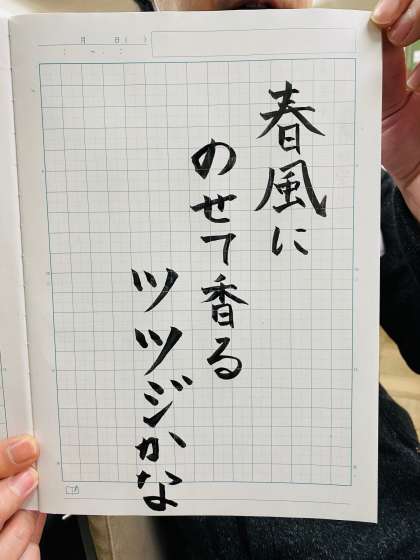 月 日( )
: ~ :
春風に
のせて香る
ツツジかな